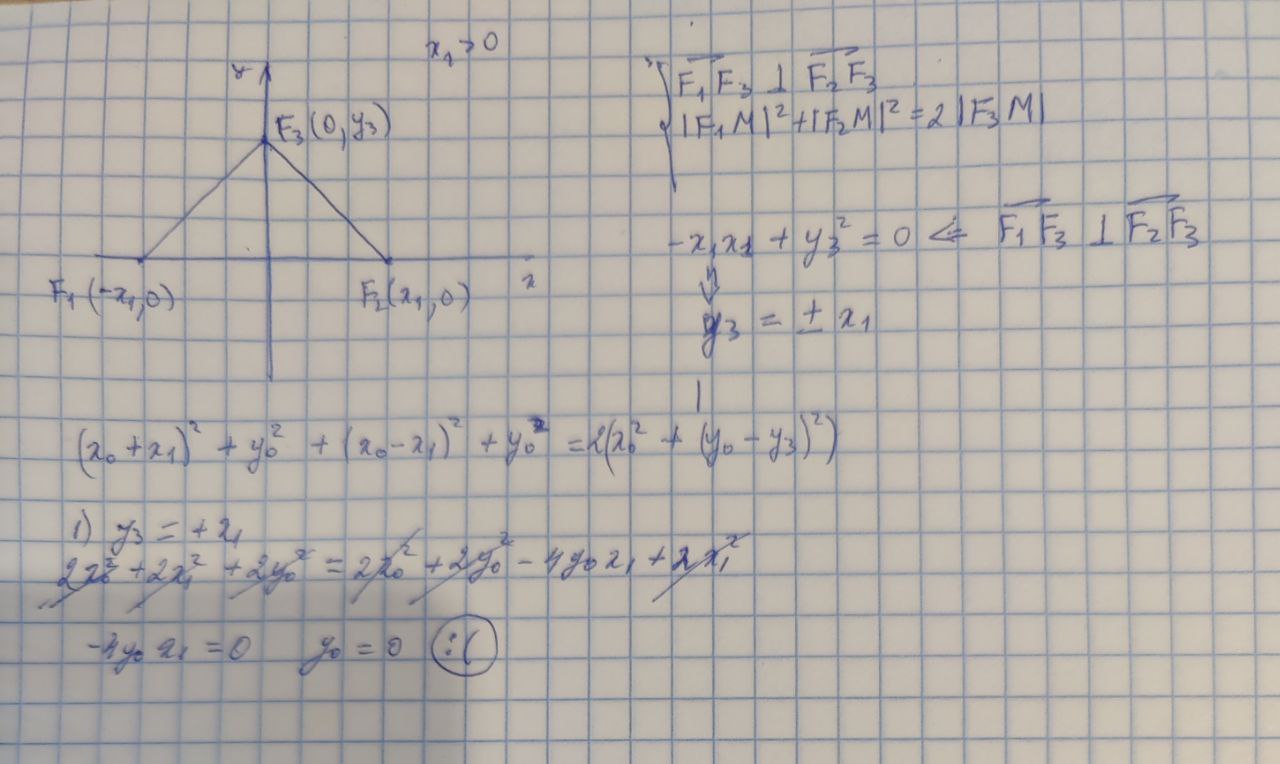 x₁ > 0
y
F₃(0, y₃)
F₁(-x₁, 0)
F₂(x₁, 0)
x
F₁F₃ ⊥ F₂F₃
|F₁M|² + |F₂M|² = 2 |F₃M|
-x₁x₁ + y₃² = 0 ⇐ F₁F₃ ⊥ F₂F₃
⇓
y₃ = ± x₁
(x₀ + x₁)² + y₀² + (x₀ - x₁)² + y₀² = 2(x₀² + (y₀ - y₃)²)
1) y₃ = + x₁
2x₀² + 2x₁² + 2y₀² = 2x₀² + 2y₀² - 4y₀x₁ + 2x₁²
-4y₀x₁ = 0 y₀ = 0 :(